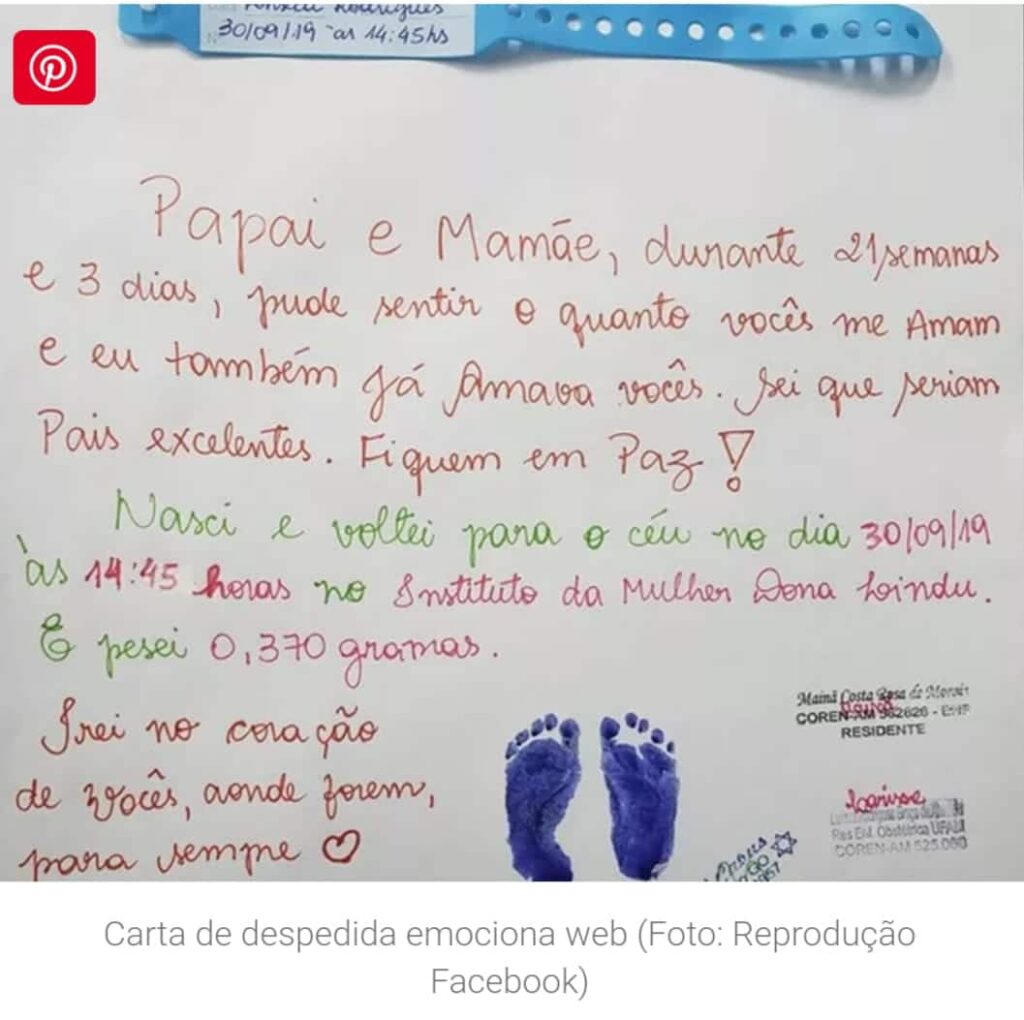 Rodrigues
30/09/19 às 14:45hs
Papai e Mamãe, durante 21 semanas
e 3 dias, pude sentir o quanto vocês me Amam
e eu também já Amava vocês. Sei que seriam
Pais excelentes. Fiquem em Paz!
Nasci e voltei para o céu no dia 30/09/19
às 14:45 horas no Instituto da Mulher Dona Lindu.
E pesei 0,370 gramas.
Irei no coração
de vocês, aonde forem,
para sempre ♡
Mainá Costa Rosa de Morais
COREN-AM
RESIDENTE
Res Enf. Obstétrica UFAM
COREN-AM 525.060
Carta de despedida emociona web (Foto: Reprodução
Facebook)